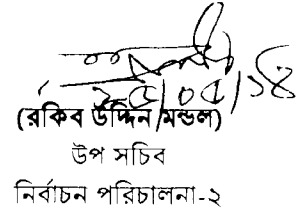 ২৫/০৫/১৪
(রকিব উদ্দিন মন্ডল)
উপ সচিব
নির্বাচন পরিচালনা-২